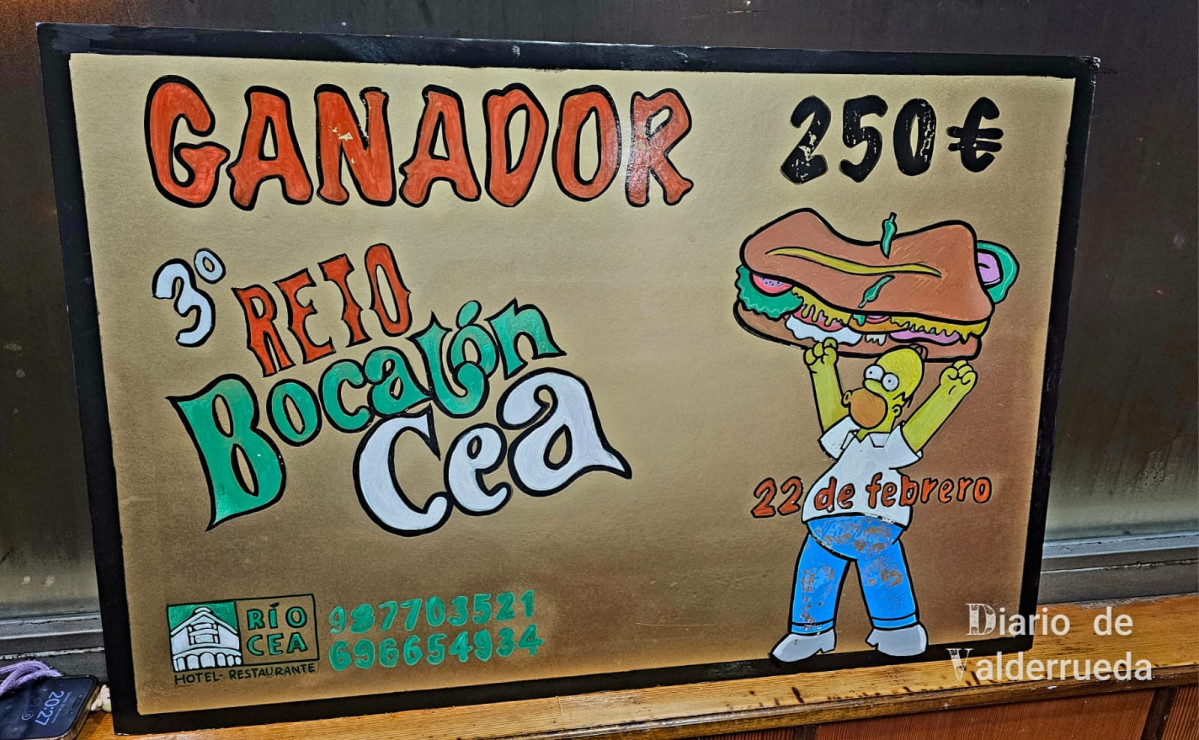 GANADOR
250€
3º RETO
Bocatón
Cea
22 de febrero
RÍO
CEA
HOTEL-RESTAURANTE
987703521
696654934
20:27
Diario de
Valderrueda